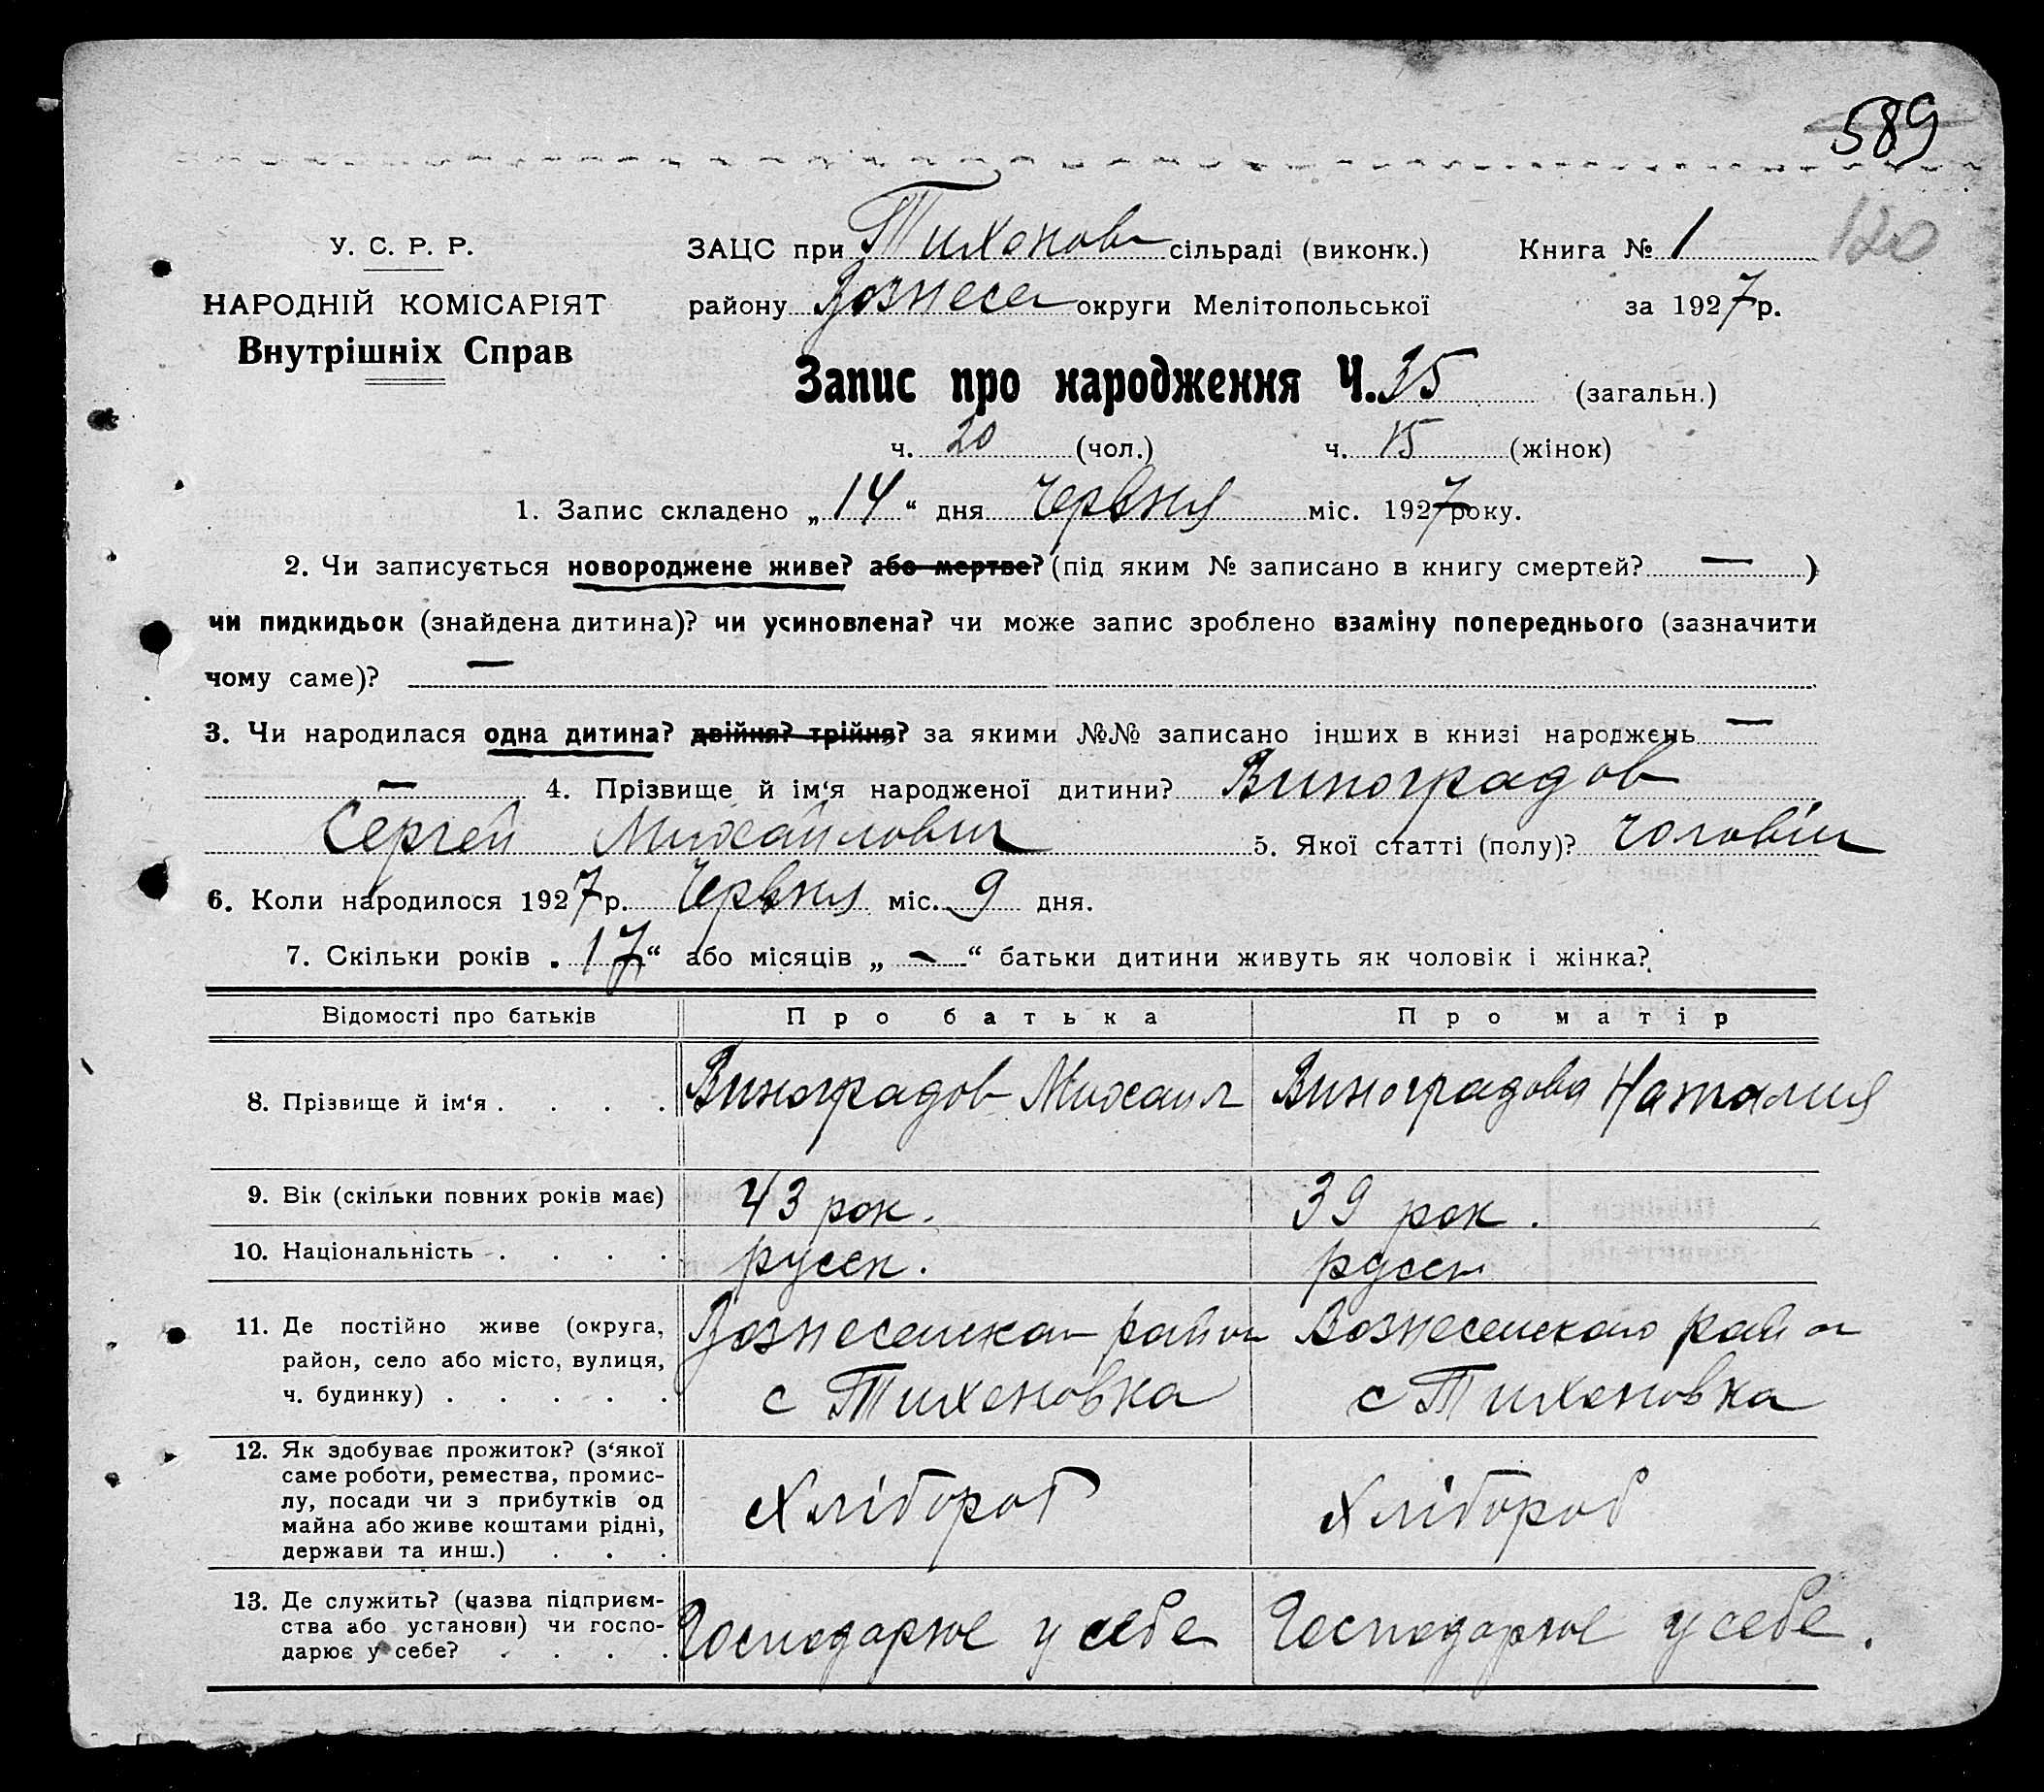 589
120
У. С. Р. Р.
НАРОДНІЙ КОМІСАРІЯТ
Внутрішніх Справ
ЗАЦС при Тихонов сільраді (виконк.) Книга № 1
району Вознесен округи Мелітопольської за 1927 р.
Запис про народження Ч. 35 (загальн.)
ч. 20 (чол.) ч. 15 (жінок)
1. Запис складено „14“ дня Червня міс. 1927 року.
2. Чи записується новороджене живе? або мертве? (під яким № записано в книгу смертей? — )
чи пидкидьок (знайдена дитина)? чи усиновлена? чи може запис зроблено взаміну попереднього (зазначити
чому саме)? —
3. Чи народилася одна дитина? двійня? трійня? за якими №№ записано інших в книзі народжень —
— 4. Прізвище й ім‘я народженої дитини? Виноградов
Сергей Михайлович 5. Якої статті (полу)? чоловіч
6. Коли народилося 1927 р. Червня міс. 9 дня.
7. Скільки років „17“ або місяців „—“ батьки дитини живуть як чоловік і жінка?
Відомості про батьків Про батька Про матір
8. Прізвище й ім‘я . . . . Виноградов Михаил Виноградова Наталия
9. Вік (скільки повних років має) 43 рок. 39 рок.
10. Національність . . . . русск. русск
11. Де постійно живе (округа,
район, село або місто, вулиця,
ч. будинку) . . . . .
Вознесенкан район
с Тихоновка
Вознесенского район
с Тихоновка
12. Як здобуває прожиток? (з‘якої
саме роботи, ремества, промис-
лу, посади чи з прибутків од
майна або живе коштами рідні,
держави та инш.) . . .
Хлібороб Хлібороб
13. Де служить? (назва підприєм-
ства або установи) чи госпо-
дарює у себе? . . . .
Господарює у себе Господарює у себе.